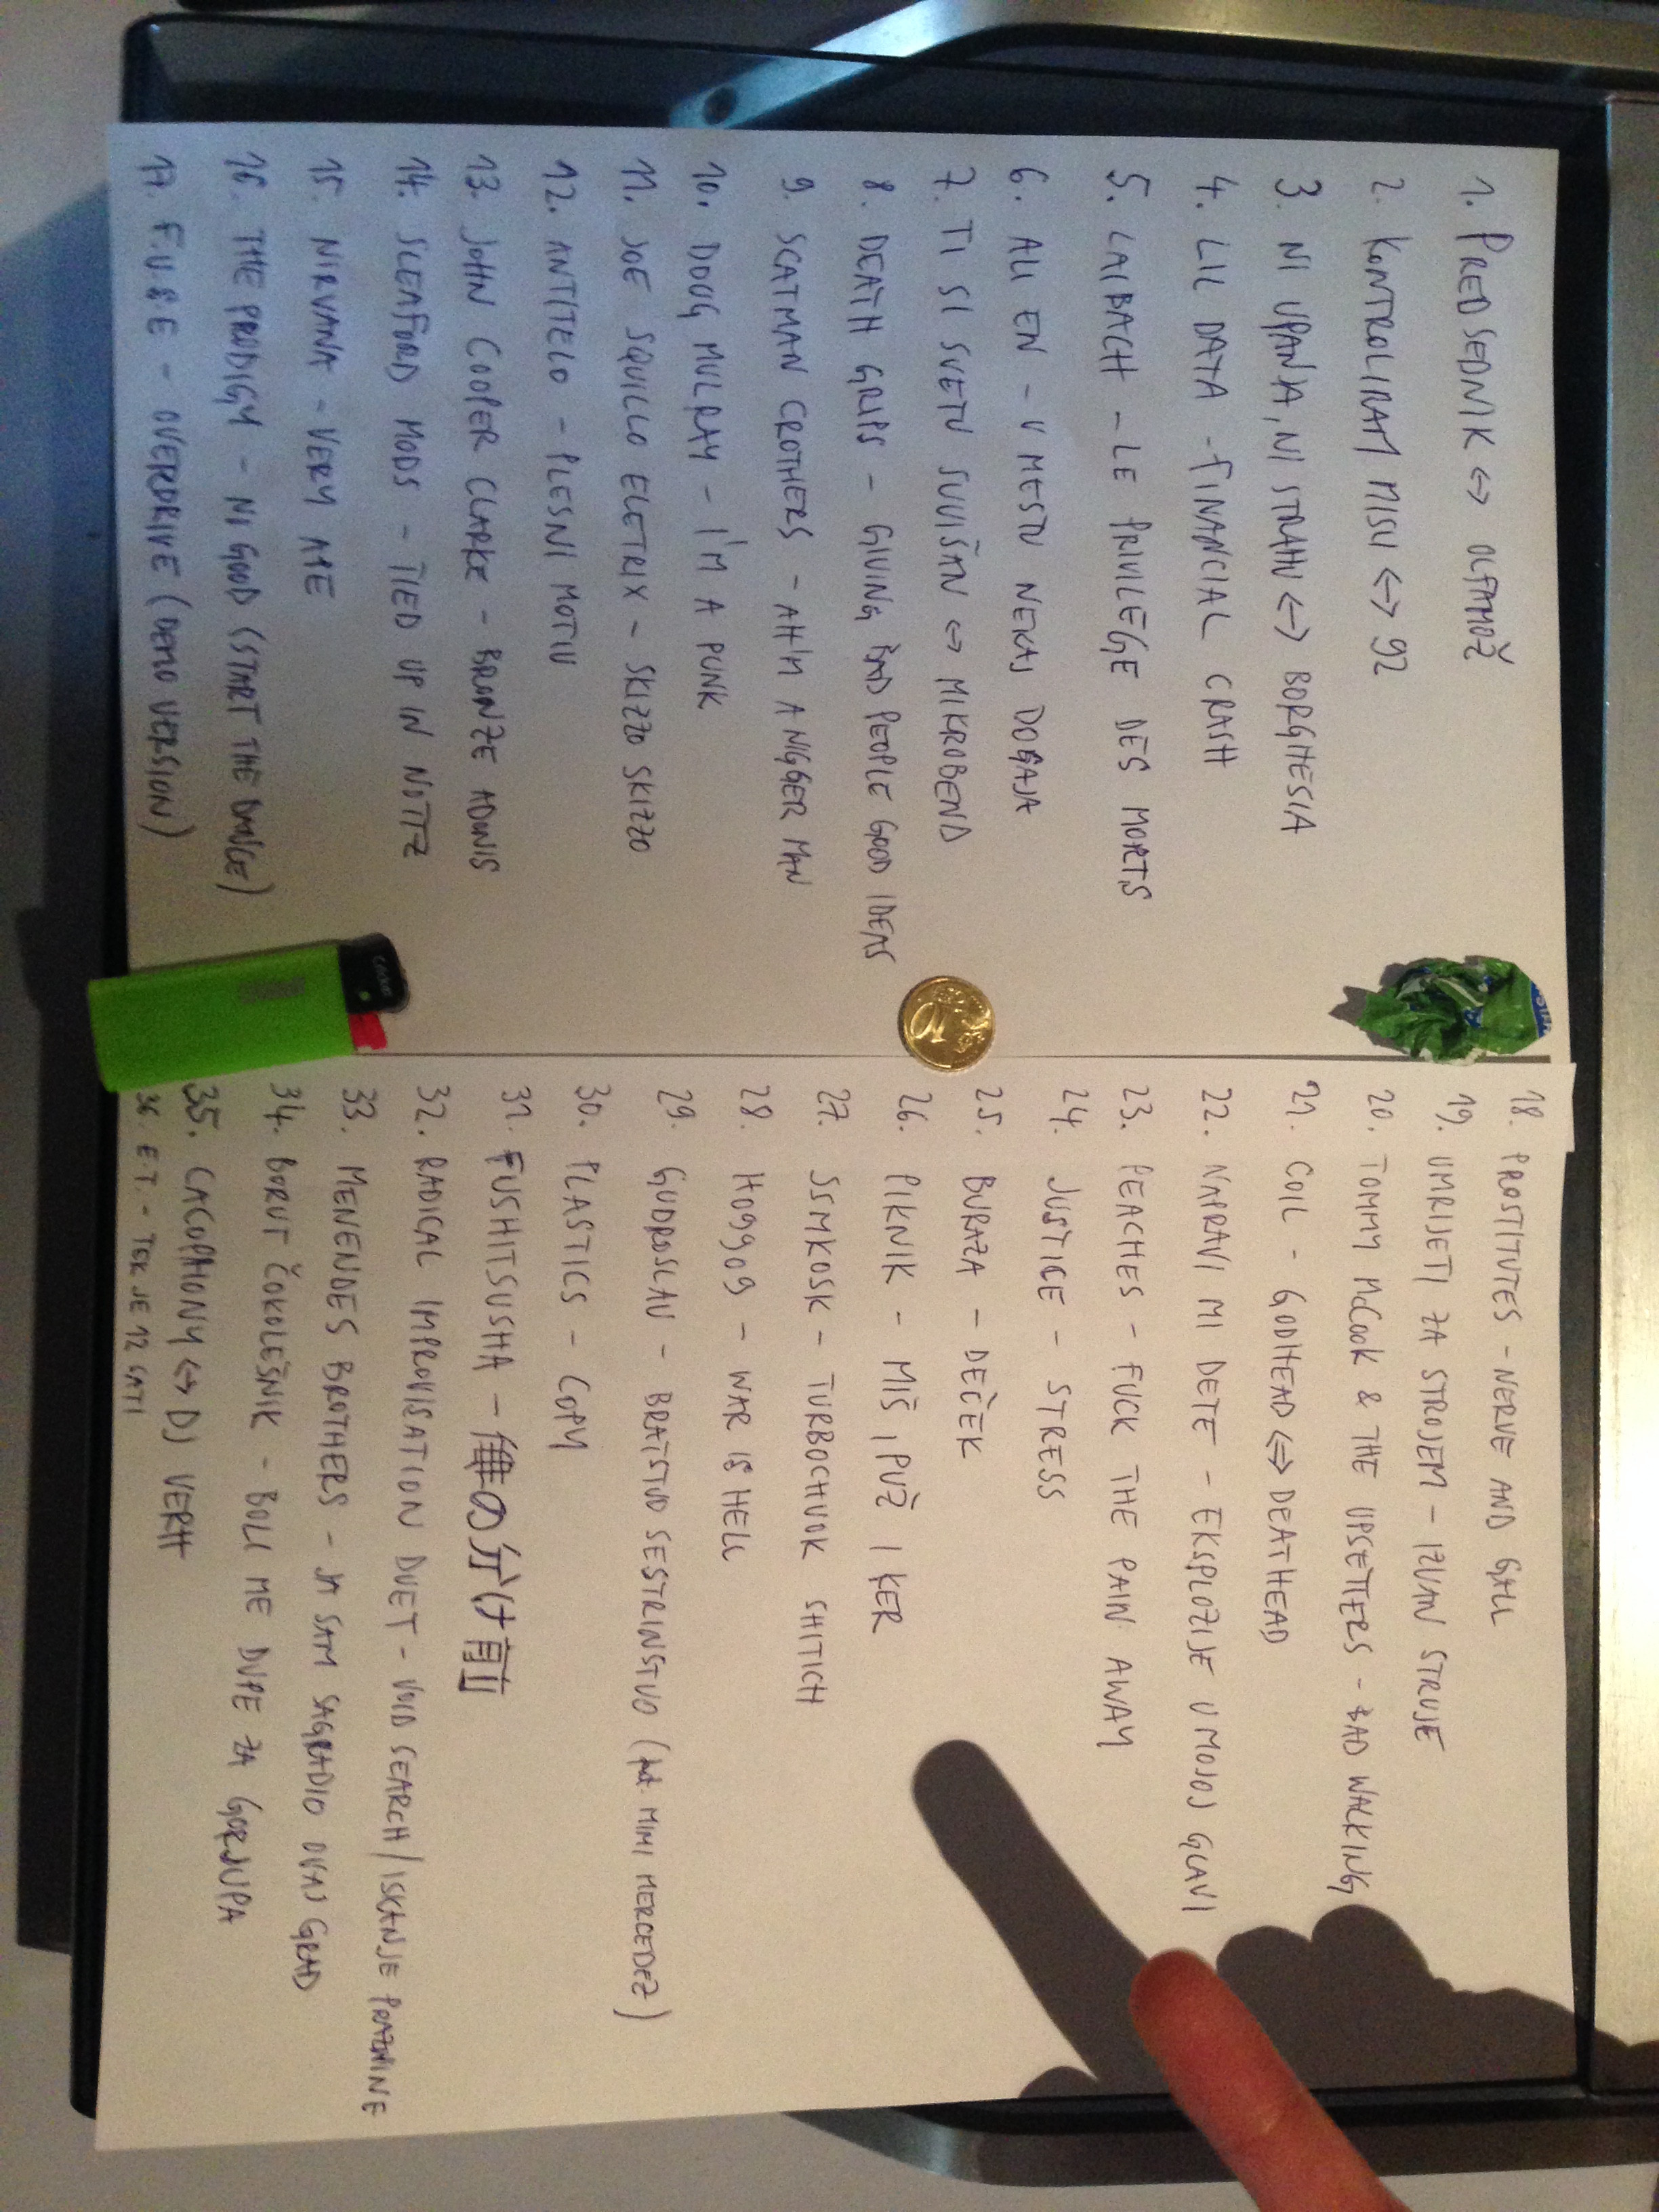 1. PREDSEDNIK <-> OLFAMOŽ
2. KONTROLIRAM MISLI <-> 92
3. NI UPANJA, NI STRAHU <-> BORGHESIA
4. LIL DATA - FINANCIAL CRASH
5. LAIBACH - LE PRIVILEGE DES MORTS
6. ALI EN - V MESTU NEKAJ DOGAJA
7. TI SI SVETU SUVIŠAN <-> MIKROBEND
8. DEATH GRIPS - GIVING BAD PEOPLE GOOD IDEAS
9. SCATMAN CROTHERS - AH'M A NIGGER MAN
10. DOUG MULRAY - I'M A PUNK
11. JOE SQUILLO ELETRIX - SKIZZO SKIZZO
12. ANTITELO - PLESNI MOTIV
13. JOHN COOPER CLARKE - BRONZE ADONIS
14. SLEAFORD MODS - TIED UP IN NOTTZ
15. NIRVANA - VERY APE
16. THE PRODIGY - NO GOOD (START THE DANCE)
17. F.U.S.E - OVERDRIVE (DEMO VERSION)
18. PROSTITUTES - NERVE AND GALL
19. UMRIJETI ZA STROJEM - IZVAN STRUJE
20. TOMMY McCOOK & THE UPSETTERS - BAD WALKING
21. COIL - GODHEAD <=> DEATHEAD
22. NAPRAVI MI DETE - EKSPLOZIJE U MOJOJ GLAVI
23. PEACHES - FUCK THE PAIN AWAY
24. JUSTICE - STRESS
25. BURAZA - DEČEK
26. PIKNIK - MIŠ, PUŽ I KER
27. SSMKOSK - TURBOCHUOK SHITICH
28. HO99O9 - WAR IS HELL
29. GUDROSLAV - BRATSTVO SESTRINSTVO (feat. MIMI MERCEDEZ)
30. PLASTICS - COPY
31. FUSHITSUSHA -
32. RADICAL IMPROVISATION DUET - VOID SEARCH / ISKANJE PRAZNINE
33. MENENDES BROTHERS - JA SAM SAGRADIO OVAJ GRAD
34. BORUT ČOKOLEŠNIK - BOLI ME DUPE ZA GORJUPA
35. CACOPHONY <-> DJ VERH
36. E.T. - TEK JE 12 SATI